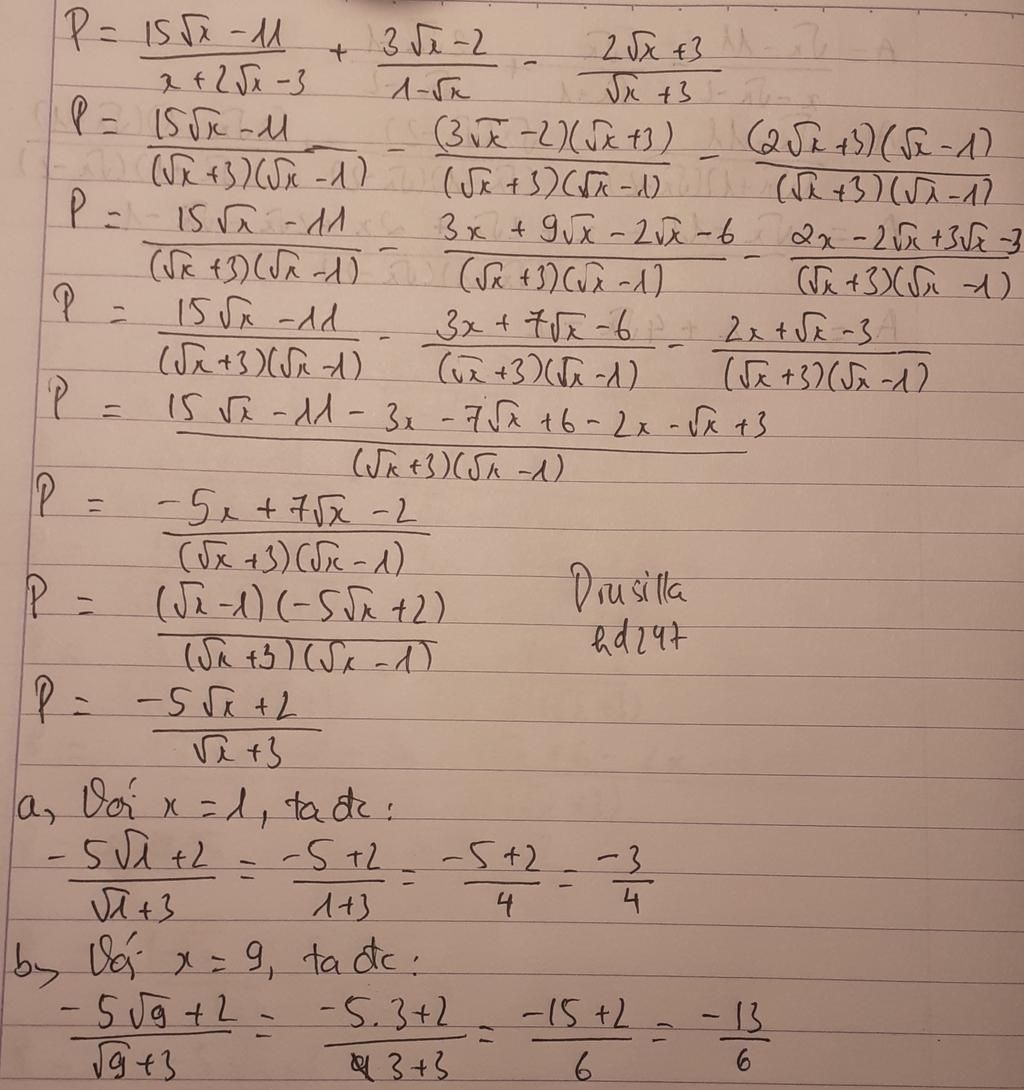 P = (15√x - 11)/(x + 2√x - 3) + (3√x - 2)/(1 - √x) - (2√x + 3)/(√x + 3)
P = (15√x - 11)/((√x + 3)(√x - 1)) - ((3√x - 2)(√x + 3))/((√x + 3)(√x - 1)) - ((2√x + 3)(√x - 1))/((√x + 3)(√x - 1))
P = (15√x - 11)/((√x + 3)(√x - 1)) - (3x + 9√x - 2√x - 6)/((√x + 3)(√x - 1)) - (2x - 2√x + 3√x - 3)/((√x + 3)(√x - 1))
P = (15√x - 11)/((√x + 3)(√x - 1)) - (3x + 7√x - 6)/((√x + 3)(√x - 1)) - (2x + √x - 3)/((√x + 3)(√x - 1))
P = (15√x - 11 - 3x - 7√x + 6 - 2x - √x + 3)/((√x + 3)(√x - 1))
P = (-5x + 7√x - 2)/((√x + 3)(√x - 1))
P = ((√x - 1)(-5√x + 2))/((√x + 3)(√x - 1))
Drusilla
hd247
P = (-5√x + 2)/(√x + 3)
a, Với x = 1, ta đc:
(-5√1 + 2)/(√1 + 3) = (-5 + 2)/(1 + 3) = (-5 + 2)/4 = -3/4
b, Với x = 9, ta đc:
(-5√9 + 2)/(√9 + 3) = (-5.3 + 2)/(3 + 3) = (-15 + 2)/6 = -13/6